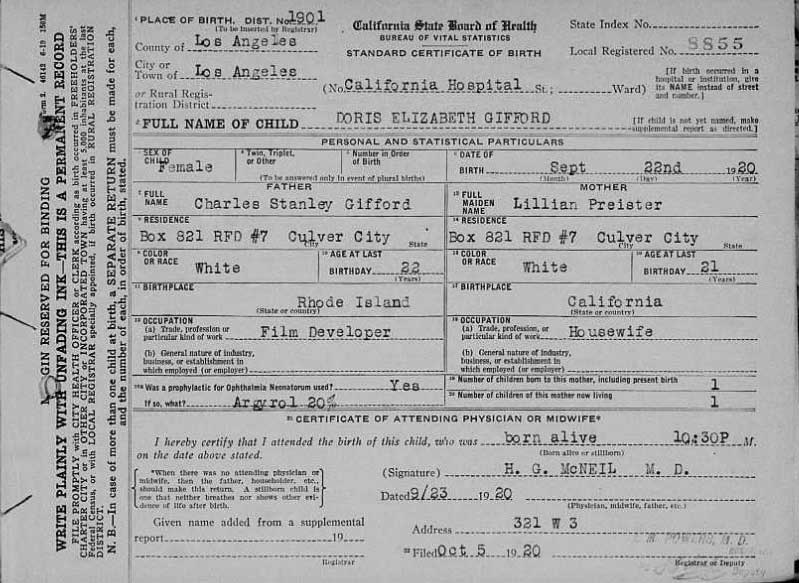 GIN RESERVED FOR BINDING
WRITE PLAINLY WITH UNFADING INK—THIS IS A PERMANENT RECORD
FILE PROMPTLY with CITY HEALTH OFFICER or CLERK according as birth occurred in FREEHOLDERS'
CHARTER CITY or in OTHER CITY or INCORPORATED TOWN having at least 5,000 inhabitants at the last
Federal Census, or with LOCAL REGISTRAR specially appointed, if birth occurred in RURAL REGISTRATION
DISTRICT.
N. B.—In case of more than one child at birth, a SEPARATE RETURN must be made for each,
and the number of each, in order of birth, stated.
PLACE OF BIRTH. DIST. No. 1901
(To be inserted by Registrar)
County of Los Angeles
City or
Town of Los Angeles
or Rural Regis-
tration District
California State Board of Health
BUREAU OF VITAL STATISTICS
STANDARD CERTIFICATE OF BIRTH
(No. California Hospital St.; Ward)
State Index No.
Local Registered No. 8855
[If birth occurred in a
hospital or institution, give
its NAME instead of street
and number.]
2 FULL NAME OF CHILD DORIS ELIZABETH GIFFORD
[If child is not yet named, make
supplemental report as directed.]
PERSONAL AND STATISTICAL PARTICULARS
SEX OF
CHILD Female
Twin, Triplet,
or Other
Number in Order
of Birth
(To be answered only in event of plural births)
DATE OF
BIRTH Sept 22nd 1920
(Month) (Day) (Year)
FATHER
FULL
NAME Charles Stanley Gifford
RESIDENCE
Box 821 RFD #7 Culver City
City State
COLOR
OR RACE White
AGE AT LAST
BIRTHDAY 22
(Years)
BIRTHPLACE
Rhode Island
(State or country)
OCCUPATION
(a) Trade, profession or
particular kind of work Film Developer
(b) General nature of industry,
business, or establishment in
which employed (or employer)
MOTHER
FULL
MAIDEN
NAME Lillian Preister
RESIDENCE
Box 821 RFD #7 Culver City
City State
COLOR
OR RACE White
AGE AT LAST
BIRTHDAY 21
(Years)
BIRTHPLACE
California
(State or country)
OCCUPATION
(a) Trade, profession, or
particular kind of work Housewife
(b) General nature of industry,
business, or establishment in
which employed (or employer)
Was a prophylactic for Ophthalmia Neonatorum used? Yes
If so, what? Argyrol 20%
Number of children born to this mother, including present birth 1
Number of children of this mother now living 1
CERTIFICATE OF ATTENDING PHYSICIAN OR MIDWIFE*
I hereby certify that I attended the birth of this child, who was born alive 10:30P M.
on the date above stated. (Born alive or stillborn)
*When there was no attending physician or
midwife, then the father, householder, etc.,
should make this return. A stillborn child is
one that neither breathes nor shows other evi-
dence of life after birth.
(Signature) H. G. McNEIL M. D.
Dated 9/23 1920
(Physician, midwife, father, etc.)
Given name added from a supplemental
report 19
Registrar
Address 321 W 3
Filed Oct 5 1920
POWERS, M. D.
Registrar or Deputy
Deputy